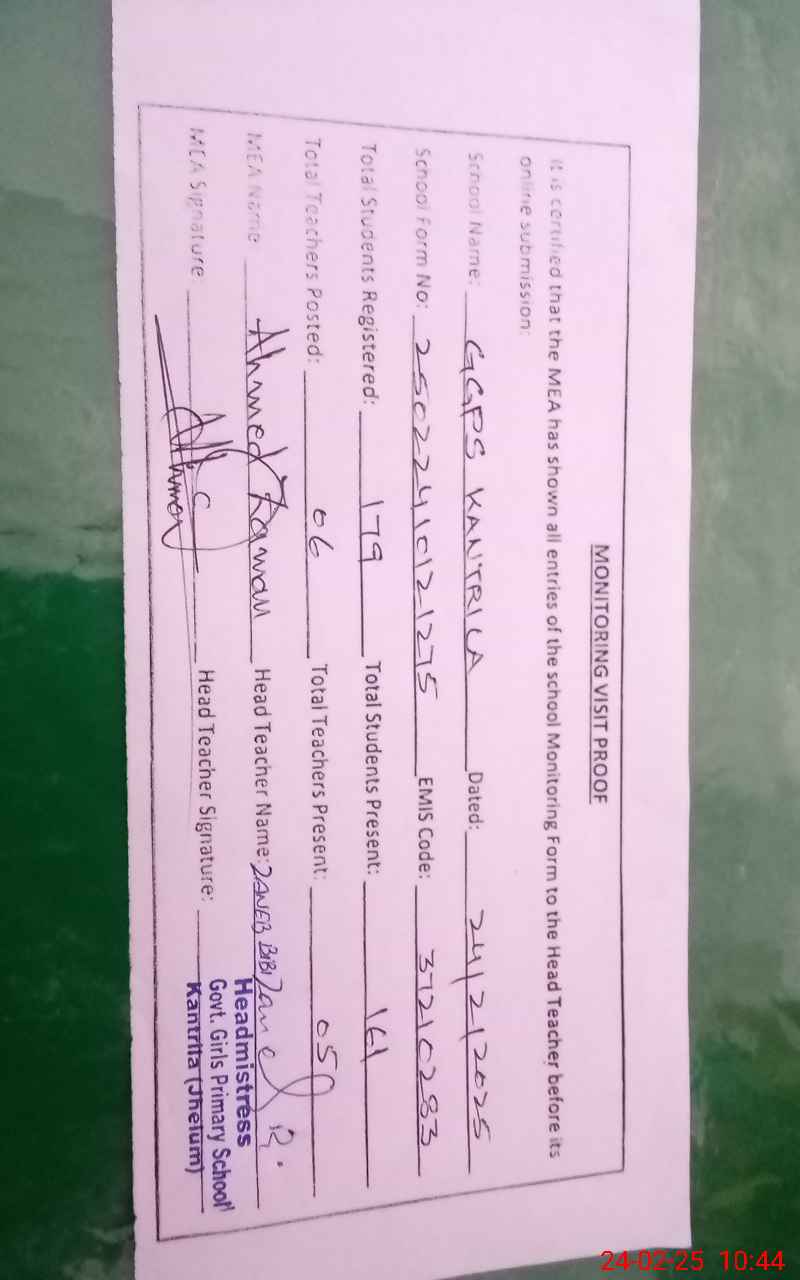 MONITORING VISIT PROOF
It is certified that the MEA has shown all entries of the school Monitoring Form to the Head Teacher before its
online submission:
School Name: GGPS KANTRILA Dated: 24/2/2025
School Form No: 250222410121275 EMIS Code: 37210283
Total Students Registered: 179 Total Students Present: 161
Total Teachers Posted: 06 Total Teachers Present: 05
MEA Name Ahmed Zaman Head Teacher Name: ZANEB BIBI
MEA Signature: Head Teacher Signature:
Headmistress
Govt. Girls Primary School
Kantrila (Jhelum)
24-02-25 10:44